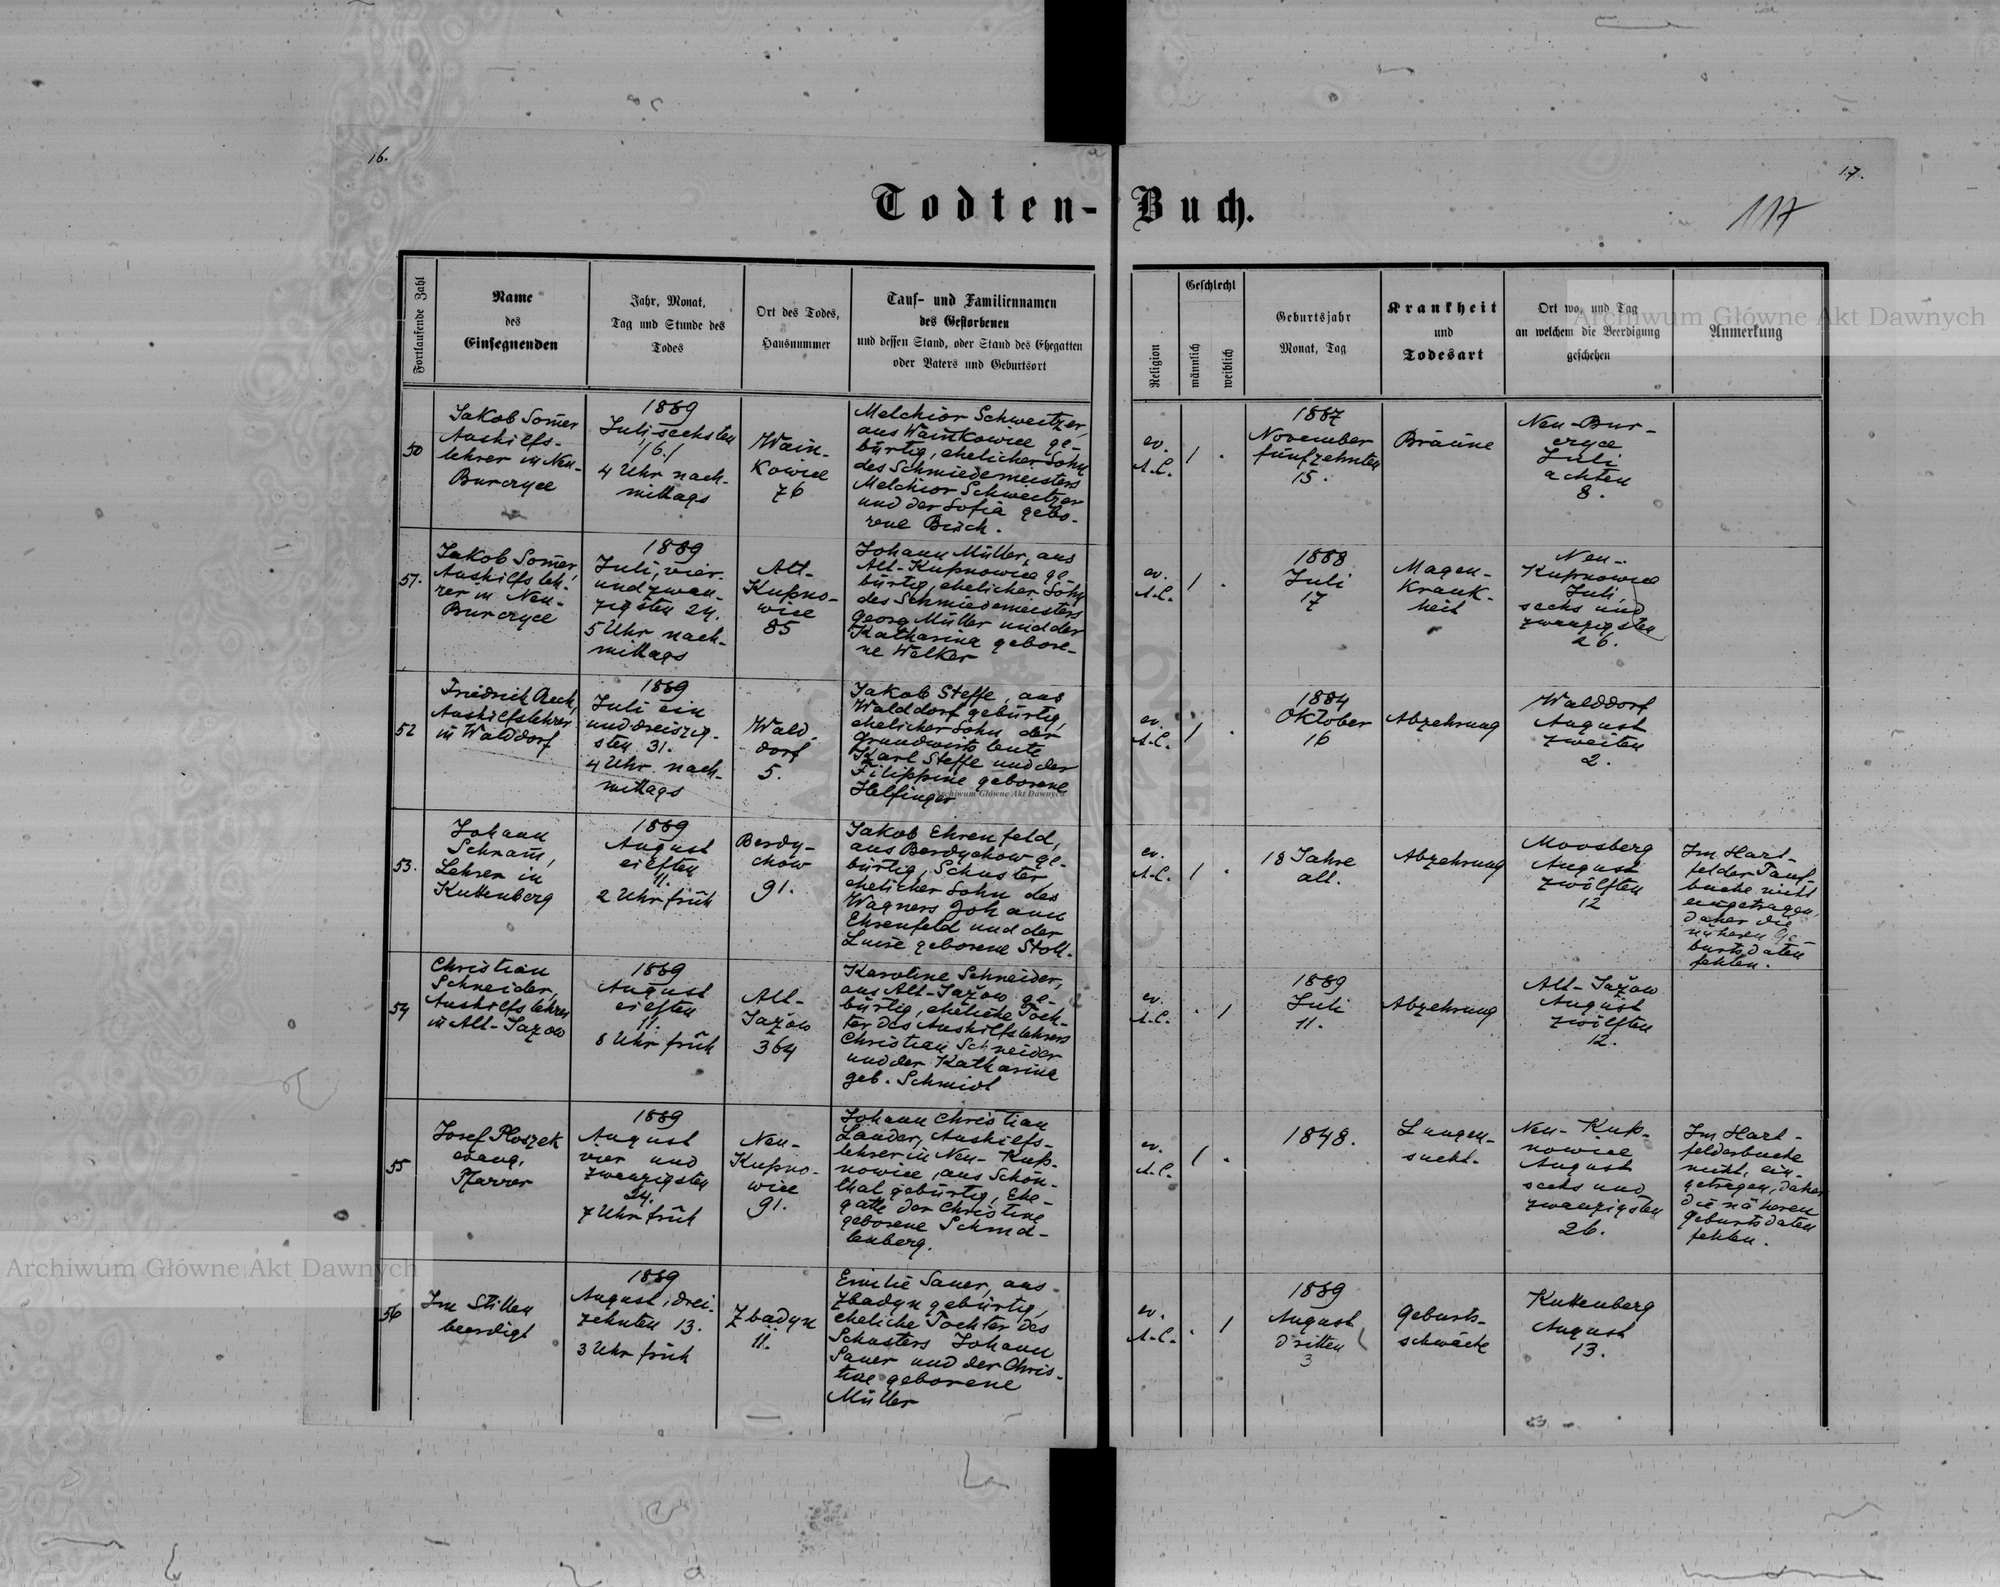 16.
17.
117
Todten-Buch.
Fortlaufende Zahl
Name
des
Einsegnenden
Jahr, Monat,
Tag und Stunde des
Todes
Ort des Todes,
Hausnummer
Tauf- und Familiennamen
des Gestorbenen
und dessen Stand, oder Stand des Ehegatten
oder Vaters und Geburtsort
Religion
Geschlecht
männlich
weiblich
Geburtsjahr
Monat, Tag
Krankheit
und
Todesart
Ort wo, und Tag
an welchem die Beerdigung
geschehen
Anmerkung
Archiwum Główne Akt Dawnych
50
Jakob Somer
Aushilfs-
lehrer in Neu-
Burczyce
1889
Juli sechsten
/6./
4 Uhr nach-
mittags
Wain-
kowice
76
Melchior Schweitzer,
aus Wainkowice ge-
bürtig, ehelicher Sohn
des Schmiedemeisters
Melchior Schweitzer
und der Sofia gebo-
rene Bisch.
ev.
A.C.
1
.
1887
November
fünfzehnten
15.
Bräune
Neu-Bur-
czyce
Juli
achten
8.
51.
Jakob Somer,
Aushilfsleh-
rer in Neu-
Burczyce
1889
Juli, vier-
und zwan-
zigsten 24.
5 Uhr nach-
mittags
Alt-
Kupno-
wice
85
Johann Müller, aus
Alt-Kupnowice ge-
bürtig, ehelicher Sohn
des Schmiedemeisters
Georg Müller und der
Katharina gebore-
ne Welker
ev.
A.C.
1
.
1888
Juli
17
Magen-
Krank-
heit
Neu-
Kupnowice
Juli,
sechs und
zwanzigsten
26.
52
Friedrich Rech,
Aushilfslehrer
in Walddorf
1889
Juli ein
und dreiszig-
sten 31.
4 Uhr nach-
mittags
Wald-
dorf
5.
Jakob Steffe, aus
Walddorf gebürtig,
ehelicher Sohn der
Grundwirtsleute
Karl Steffe und der
Filippine geborene
Helfinger
Archiwum Główne Akt Dawnych
ev.
A.C.
1
.
1884
Oktober
16
Abzehrung
Walddorf
August
zweiten
2.
53.
Johann
Schram,
Lehrer in
Kuttenberg
1889
August
eilften
11.
2 Uhr früh
Berdy-
chow
91.
Jakob Ehrenfeld,
aus Berdychow ge-
bürtig, Schuster
ehelicher Sohn des
Wagners Johann
Ehrenfeld und der
Luise geborene Stoll.
ev.
A.C.
1
.
18 Jahre
alt.
Abzehrung
Moosberg
August
zwölften
12
Im Hart-
felder Tauf-
buche nicht
eingetragen,
daher die
näheren Ge-
burtsdaten
fehlen.
54
Christian
Schneider,
Aushilfslehrer
in Alt-Jazow
1889
August
eilften
11.
8 Uhr früh
Alt-
Jażow
364
Karoline Schneider,
aus Alt-Jażow ge-
bürtig, eheliche Toch-
ter des Aushilfslehrers
Christian Schneider
und der Katharina
geb. Schmidt
ev.
A.C.
.
1
1889
Juli
11.
Abzehrung
Alt-Jażow
August
zwölften
12.
55
Josef Ploszek
evang.
Pfarrer
1889
August
vier und
zwanzigsten
24.
7 Uhr früh
Neu-
Kupno-
wice
91.
Johann Christian
Lander, Aushilfs-
lehrer in Neu-Kup-
nowice, aus Schön-
thal gebürtig, Ehe-
gatte der Christine
geborene Schma-
lenberg.
ev.
A.C.
1
.
1848.
Lungen-
sucht.
Neu-Kup-
nowice
August
sechs und
zwanzigsten
26.
Im Hart-
felderbuche
nicht ein-
getragen, daher
die näheren
Geburtsdaten
fehlen.
Archiwum Główne Akt Dawnych
56
Im Stillen
beerdigt
1889
August, drei-
zehnten 13.
3 Uhr früh
Zbadyn
11.
Emilie Sauer, aus
Zbadyn gebürtig,
eheliche Tochter des
Schusters Johann
Sauer und der Chris-
tine geborene
Müller
ev.
A.C.
.
1
1889
August
dritten
3
Geburts-
schwäche
Kuttenberg
August
13.